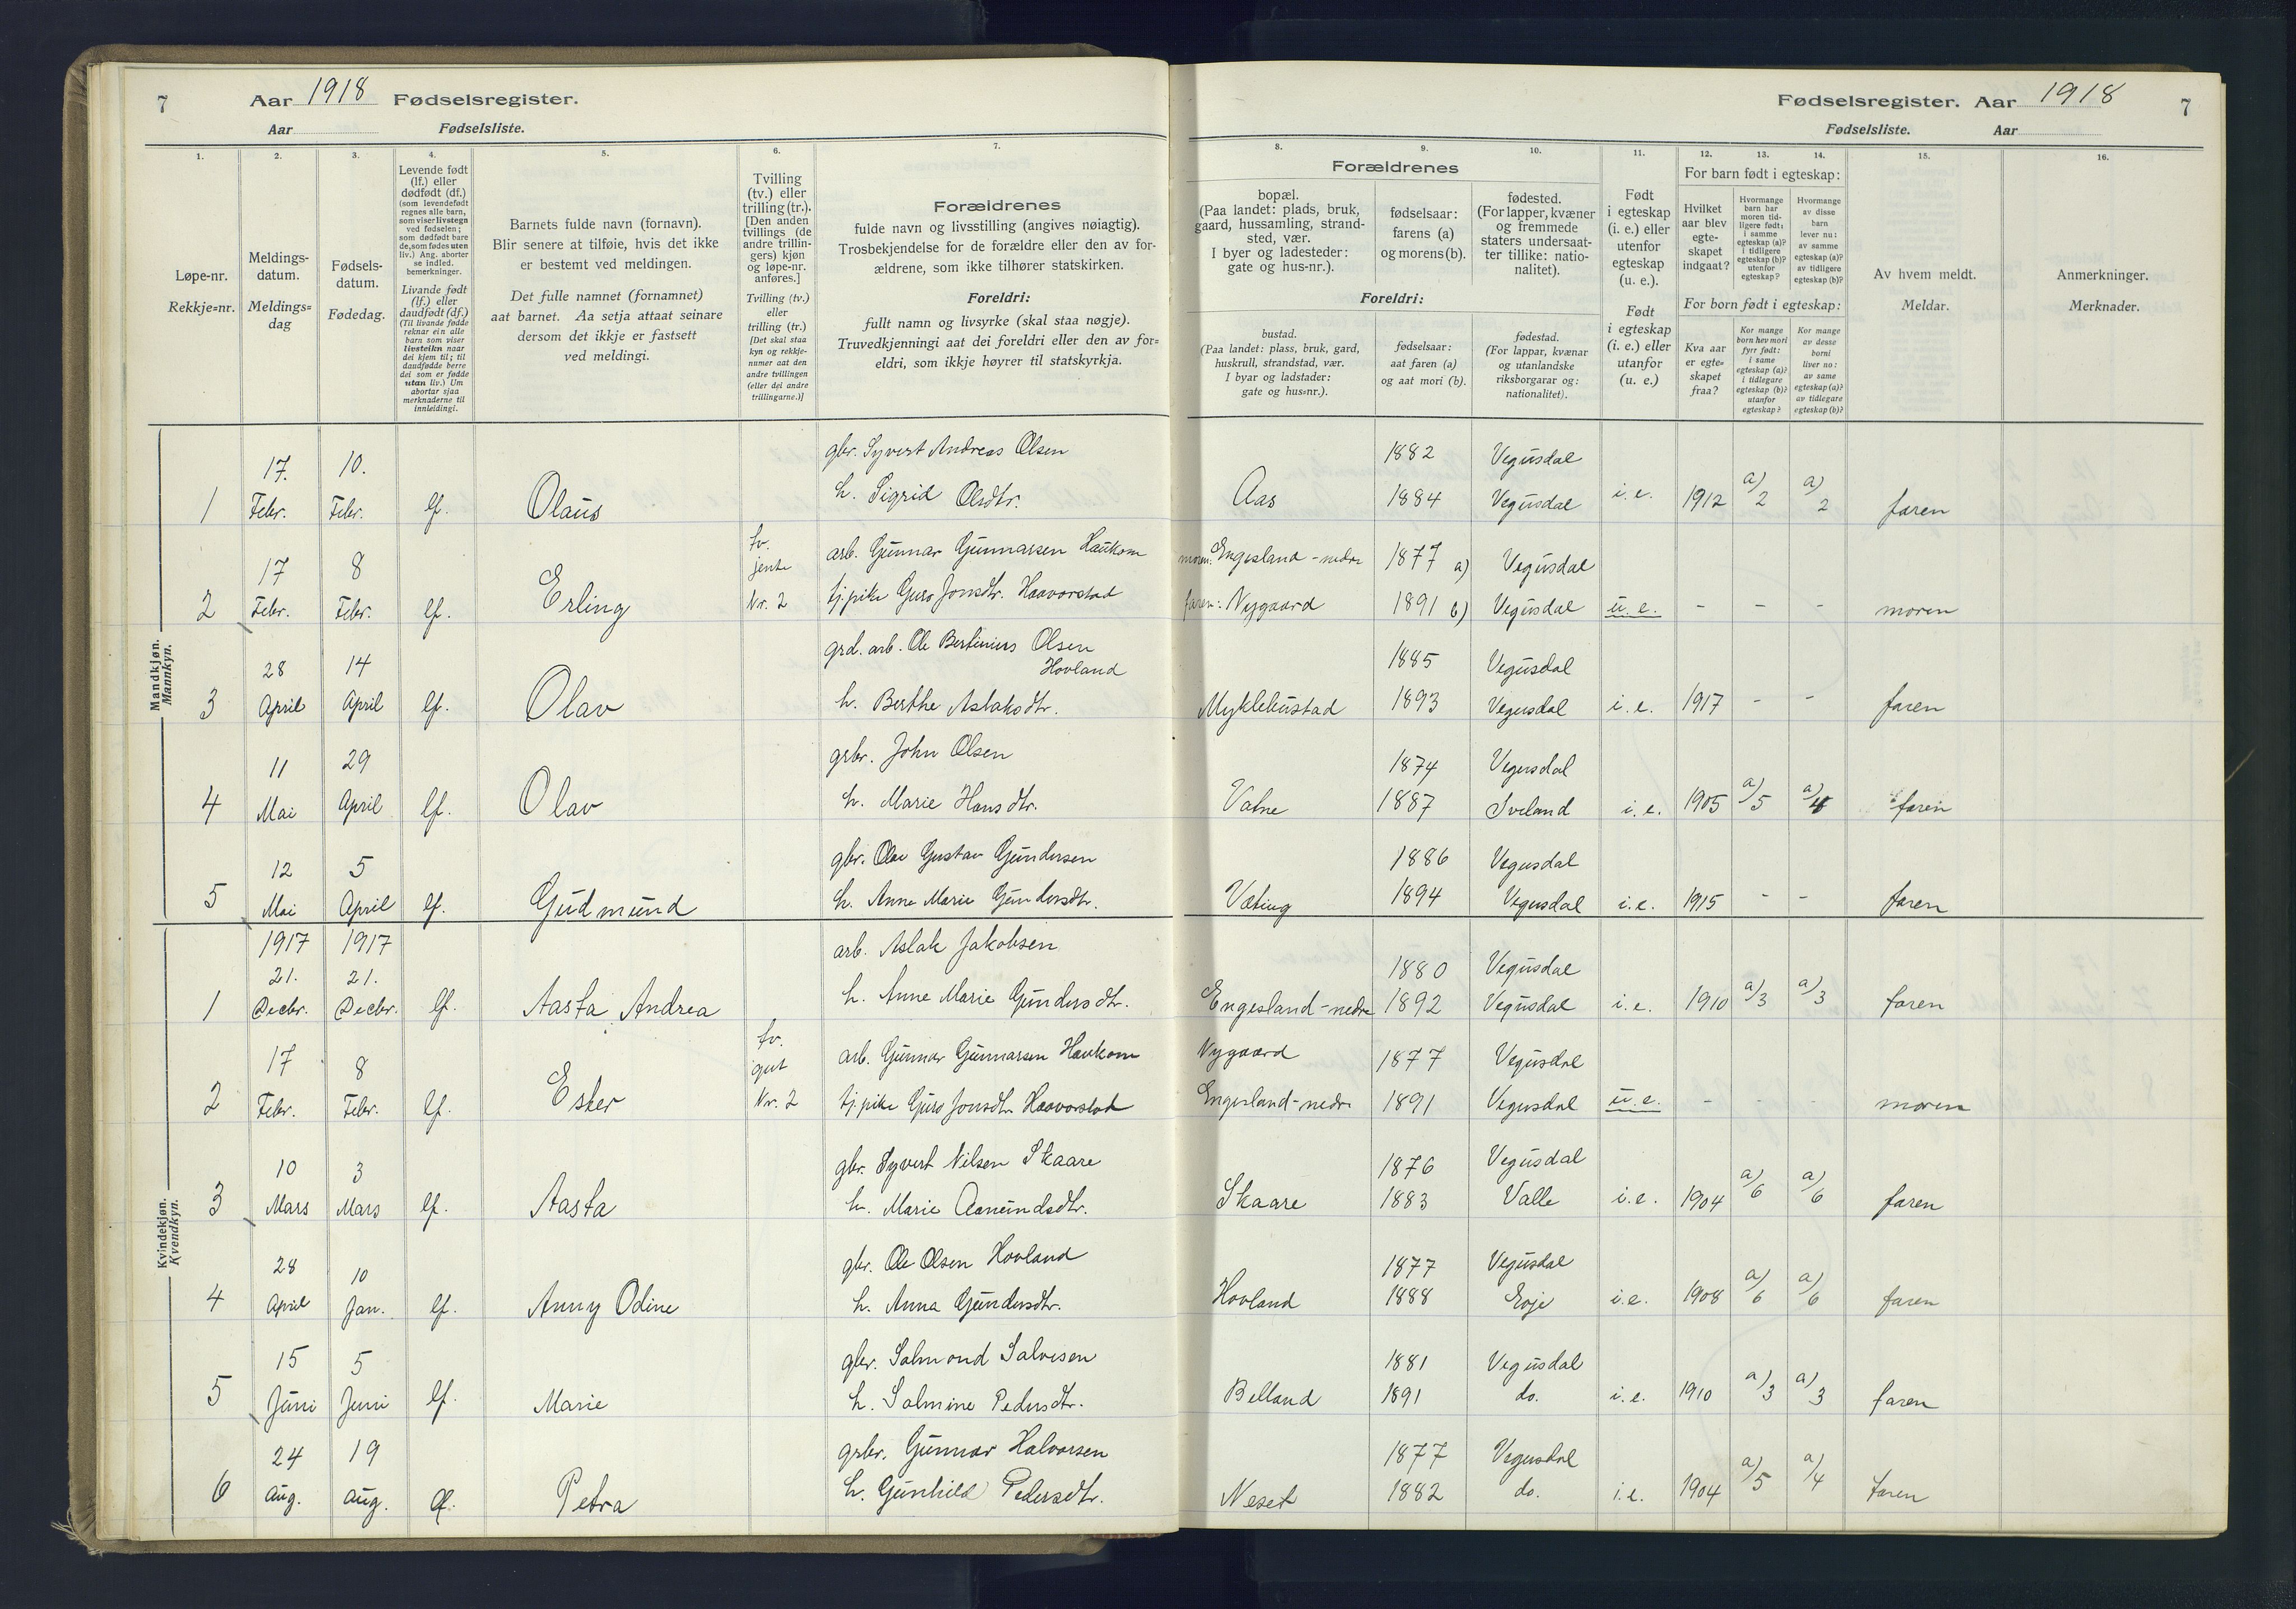 7
Aar 1918 Fødselsregister.
Aar Fødselsliste.
Fødselsregister. Aar 1918
7
Fødselsliste. Aar
1. 2. 3. 4. 5. 6. 7.
Løpe-nr.
Rekkje=nr.
Meldings-
datum.
Meldings=
dag
Fødsels-
datum.
Fødedag.
Levende født
(lf.) eller
dødfødt (df.)
(som levendefødt
regnes alle barn,
som viser livstegn
ved fødselen;
som dødfødt bare
de, som fødes uten
liv.) Ang. aborter
se indled.
bemerkninger.
Livande født
(lf.) eller
daudfødt (df.)
(Til livande fødde
reknar ein alle
barn som viser
livsteikn naar
dei kjem til; til
daudfødde berre
dei som er fødde
utan liv.) Um
abortar sjaa
merknaderne til
innleidingi.
Barnets fulde navn (fornavn).
Blir senere at tilføie, hvis det ikke
er bestemt ved meldingen.
Det fulle namnet (fornamnet)
aat barnet. Aa setja attaat seinare
dersom det ikkje er fastsett
ved meldingi.
Tvilling
(tv.) eller
trilling (tr.).
[Den anden
tvillings (de
andre trillin-
gers) kjøn
og løpe-nr.
anføres.]
Tvilling (tv.)
eller
trilling (tr.)
[Det skal staa
kyn og rekkje-
numer aat den
andre tvillingen
(eller dei andre
trillingarne.)]
Forældrenes
fulde navn og livsstilling (angives nøiagtig).
Trosbekjendelse for de forældre eller den av for-
ældrene, som ikke tilhører statskirken.
Foreldri:
fullt namn og livsyrke (skal staa nøgje).
Truvedkjenningi aat dei foreldri eller den av for=
eldri, som ikkje høyrer til statskyrkja.
8. 9. 10. 11. 12. 13. 14. 15. 16.
Forældrenes
bopæl.
(Paa landet: plads, bruk,
gaard, hussamling, strand-
sted, vær.
I byer og ladesteder:
gate og hus-nr.).
fødselsaar:
farens (a)
og morens (b).
fødested.
(For lapper, kvæner
og fremmede
staters undersaat-
ter tillike: natio-
nalitet).
Foreldri:
bustad.
(Paa landet: plass, bruk, gard,
huskrull, strandstad, vær.
I byar og ladstader:
gate og hus=nr.).
fødselsaar:
aat faren (a)
og aat mori (b).
fødestad.
(For lappar, kvænar
og utanlandske
riksborgarar og:
nationalitet).
Født
i egteskap
(i. e.) eller
utenfor
egteskap
(u. e.).
Født
i egteskap
(i. e.) eller
utanfor
(u. e.)
For barn født i egteskap:
Hvilket
aar blev
egte-
skapet
indgaat?
Hvormange
barn har
moren tid-
ligere født:
i samme
egteskap (a)?
i tidligere
egteskap (b)?
utenfor
egteskap?
Hvormange
av disse
barn
lever nu:
av samme
egteskap (a)?
av tidligere
egteskap (b)?
For born født i egteskap:
Kva aar
er egte=
skapet
fraa?
Kor mange
born hev mori
fyrr født:
i same
egteskap (a)?
i tidlegare
egteskap (b)?
utanfor
egteskap?
Kor mange
av desse
borni
liver no:
av same
egteskap (a)?
av tidlegare
egteskap (b)?
Av hvem meldt.
Meldar.
Anmerkninger.
Merknader.
Mandkjøn.
Mannkyn.
1 17. Febr. 10. Febr. lf. Olaus
gbr. Syvert Andreas Olsen
h. Sigrid Olsdtr.
Aas 1882 Vegusdal
1884 Vegusdal i.e. 1912 a) 2 a) 2 faren
2 17 Febr. 8 Febr. lf. Erling tv. jente Nr. 2
arb. Gunnar Gunnarsen Haukom
tj.pike Guro Jonsdtr. Haavorstad
moren: Engesland-nedre 1877 a) Vegusdal
faren: Nygaard 1891 b) Vegusdal u.e. - - - moren
3 28 April 14 April lf. Olav
grd. arb. Ole Bertinius Olsen
Hovland
h. Berthe Aslaksdtr.
1885 Vegusdal
Myklebustad 1893 Vegusdal i.e. 1917 - - faren
4 11 Mai 29 April lf. Olav
grbr. John Olsen
h. Marie Hansdtr.
1874 Vegusdal
Vatne 1887 Iveland i.e. 1905 a)5 a)4 faren
5 12 Mai 5 April lf. Gudmund
gbr. Olav Gustav Gundersen
h. Anne Marie Gundersdtr.
1886 Vegusdal
Væting 1894 Vegusdal i.e. 1915 - - faren
Kvindekjøn.
Kvendkyn.
1 1917 21. Decbr. 1917 21. Decbr. lf. Aasta Andrea
arb. Aslak Jakobsen
h. Anne Marie Gundersdtr.
1880 Vegusdal
Engesland-nedre 1892 Vegusdal i.e. 1910 a)3 a)3 faren
2 17 Febr. 8 Febr. lf. Ester tv. gut Nr. 2
arb. Gunnar Gunnarsen Haukom
tj.pike Guro Jonsdtr. Haavorstad
Nygaard 1877 Vegusdal
Engesland-nedre 1891 Vegusdal u.e. - - - moren
3 10 Mars 3 Mars lf. Aasta
gbr. Syvert Nilsen Skaare
h. Marie Aanundsdtr.
1876 Vegusdal
Skaare 1883 Valle i.e. 1904 a)6 a)6 faren
4 28 April 10 Jan. lf. Anny Odine
gbr. Ole Olsen Hovland
h. Anna Gundersdtr.
1877 Vegusdal
Hovland 1888 Evje i.e. 1908 a)6 a)6 faren
5 15 Juni 5 Juni lf. Marie
gbr. Salmond Salvesen
h. Salmine Pedersdtr.
1881 Vegusdal
Belland 1891 do. i.e. 1910 a)3 a)3 faren
6 24 Aug. 19 Aug. lf. Petra
grbr. Gunnar Halvorsen
h. Gunhild Pedersdtr.
1877 Vegusdal
Neset 1882 do. i.e. 1904 a)5 a)4 faren